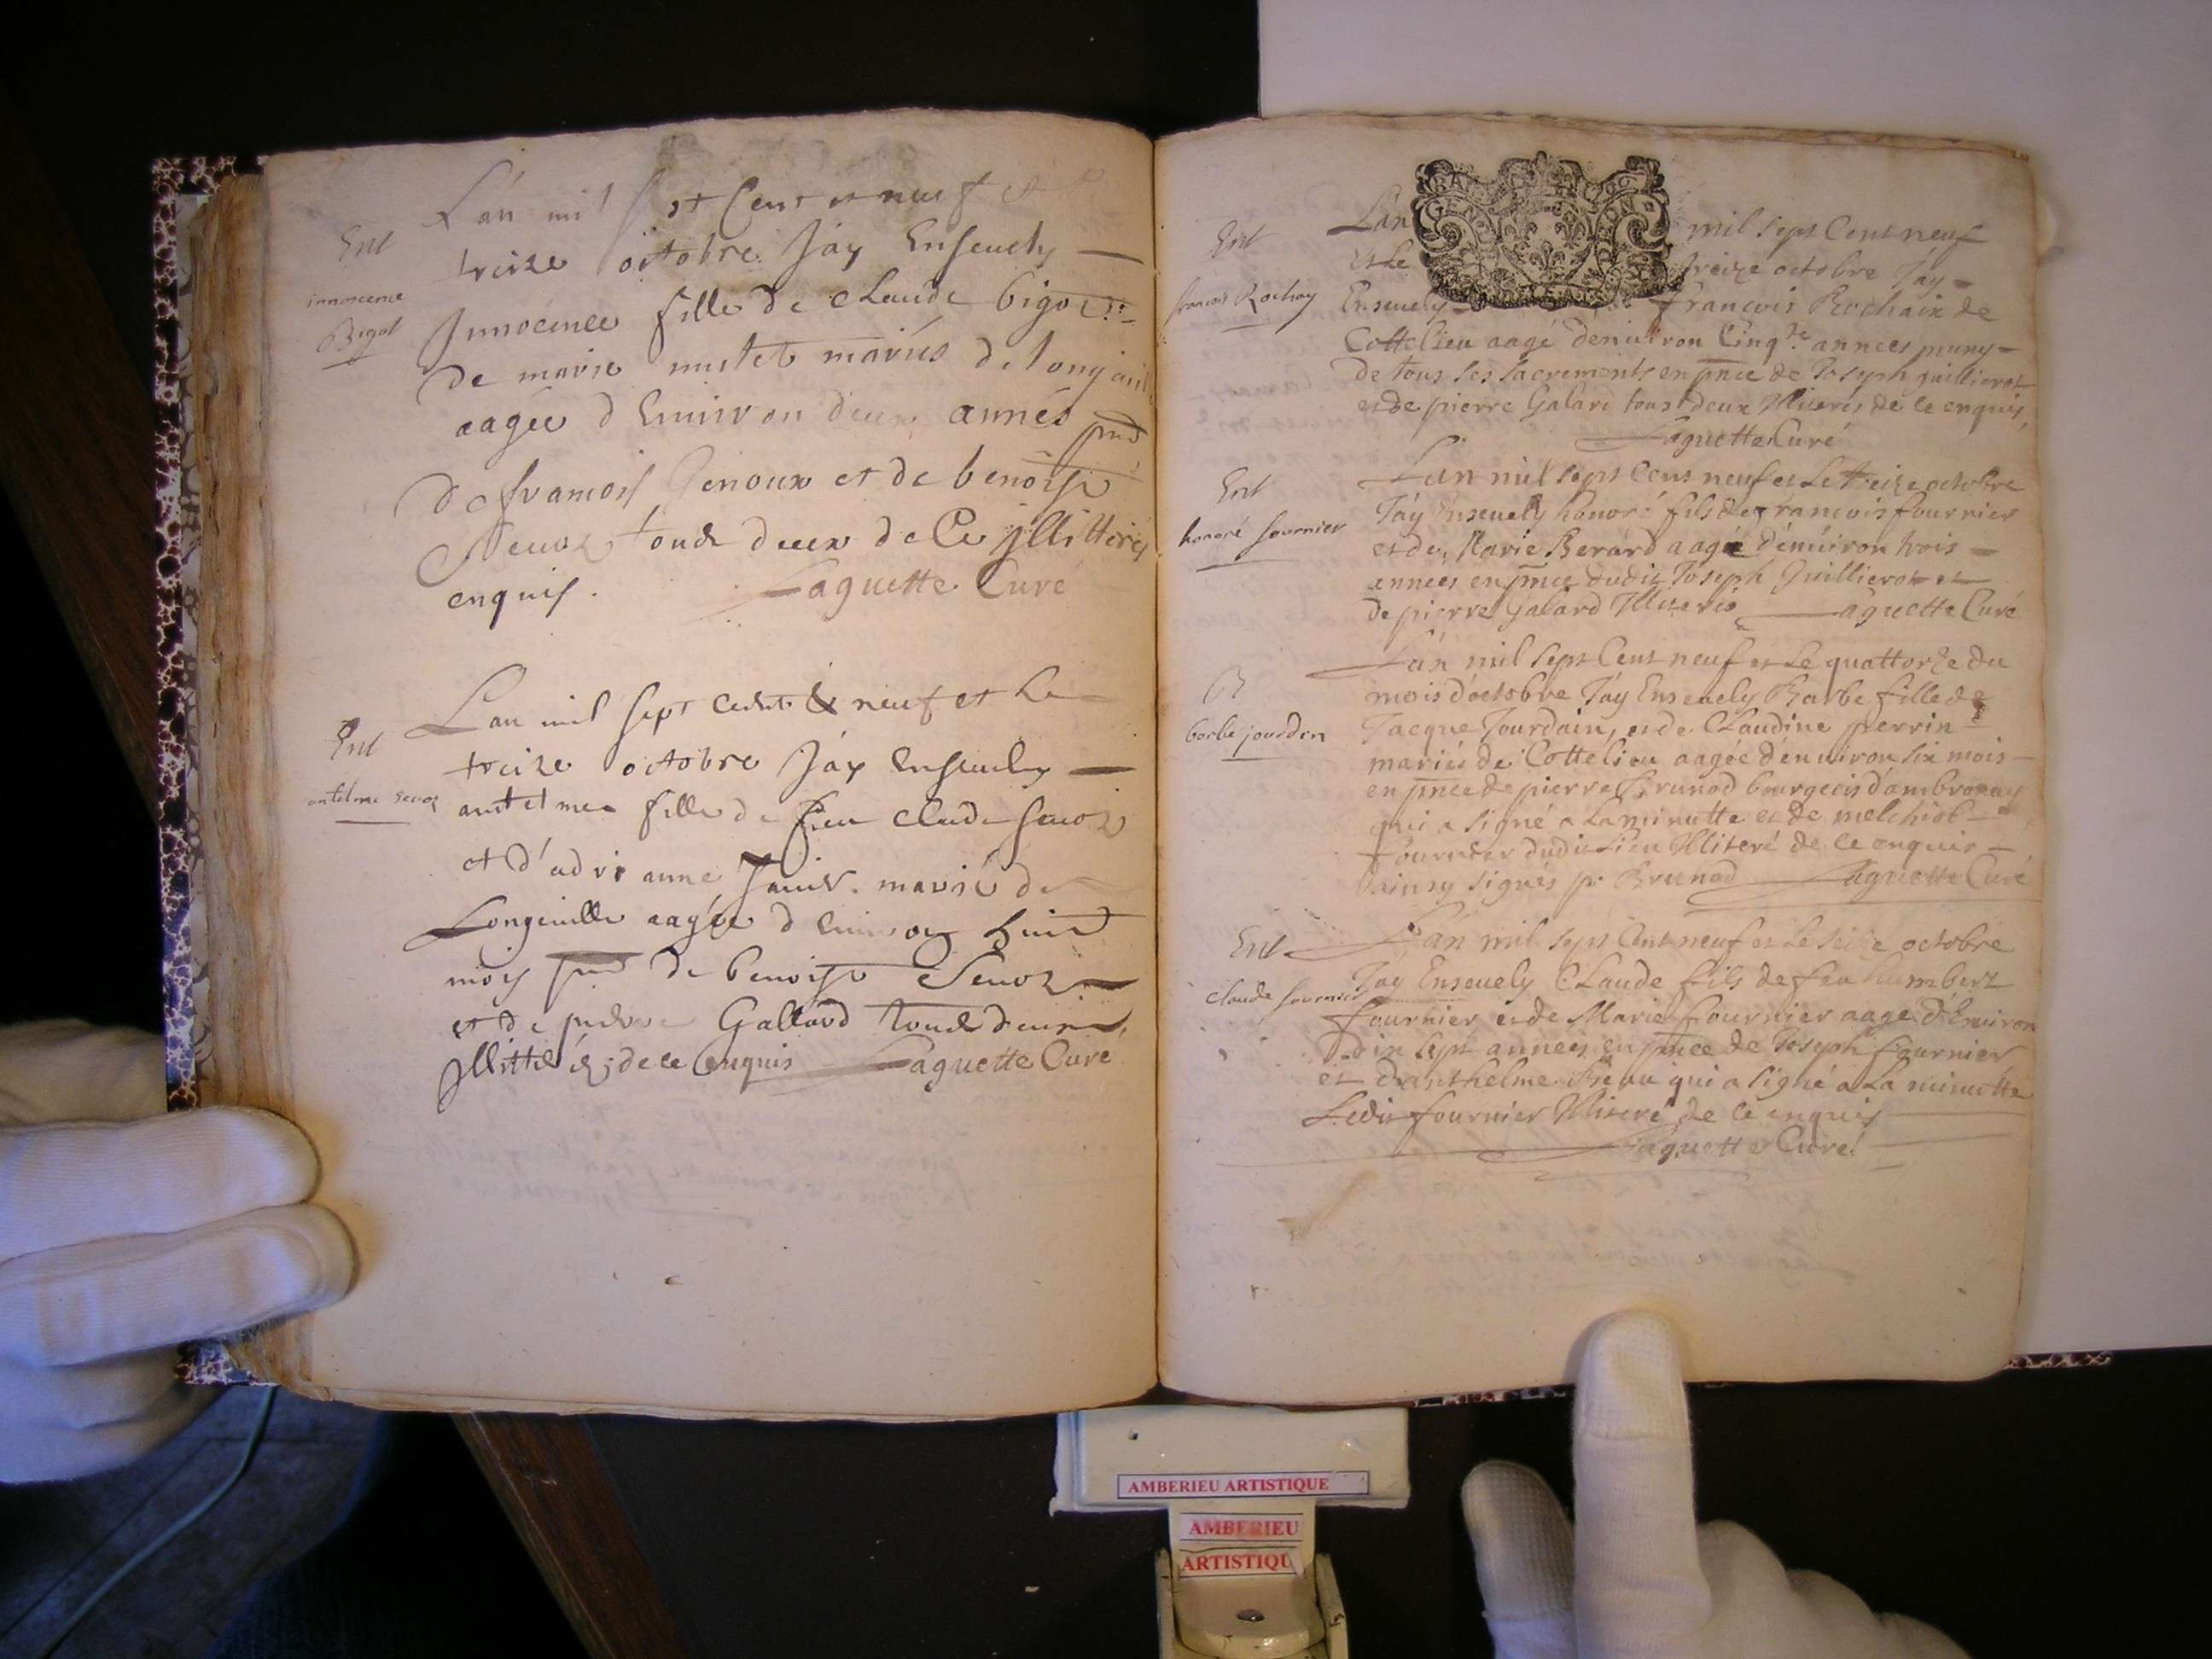 Ent
innocence
Bigot
L'an mil sept Cent et neuf et le
treize octobre Jay Ensevely
Innocence fille de Claude bigot
de marie mutet mariés de longeuil
aagée d'Environ deux années pnts
de francois Genoux et de benoist
Sevoz tous deux de Ce jllitterés
enquis. Laguette Curé
Ent
antelme sevoz
L'an mil sept cent & neuf et Le
treize octobre Jay Ensevely
antelmea fille de feu Claude Sevoz
et d'adrianne mariés de
Longeville aagée d'Environ huit
mois pnts de benoist Sevoz
et de pierre Gallard tous deux
Jllitterés de ce Enquis Laguette Curé
Ent
francois Rochay
L'an mil sept Cent neuf
et Le treize octobre Jay
Ensevely francois Rochaix de
Cottelieu aagé denviron Cinqte annees muny
de tous ses sacrements en pnce de Joseph guillierot
et de pierre Galard tous deux Illiterés de ce enquis,
Laguette Curé
Ent
honoré fournier
L'an mil sept Cent neuf et Le treize octobre
Jay Ensevely honoré fils de francois fournier
et de Marie Berard aagé d'environ trois
années en pnce dudit Joseph Guillierot et
de pierre Galard Illiterés Laguette Curé
barbe jourden
L'an mil sept Cent neuf et Le quattorze du
mois d'octobre Jay Ensevely Barbe fille de
Jacque Jourdain, et de Claudine perrin
mariés de Cottelieu aagée d'environ six mois
en pnce de pierre Brunod bourgeois d'ambronay
qui a signé a La minutte et de melchiol
fournier dudit Lieu Illiteré de ce enquis
ainsy signés p. Brunod Laguette Curé
Ent
claude fournier
L'an mil sept Cent neuf et Le seize octobre
Jay Ensevely Claude fils de feu humbert
fournier et de Marie fournier aagé d'Environ
dix sept annees en pnce de Joseph fournier
et d'anthelme qui a signé a La minutte
Ledit fournier Illiteré de ce enquis
Laguette Curé
AMBERIEU ARTISTIQUE
AMBERIEU
ARTISTIQU